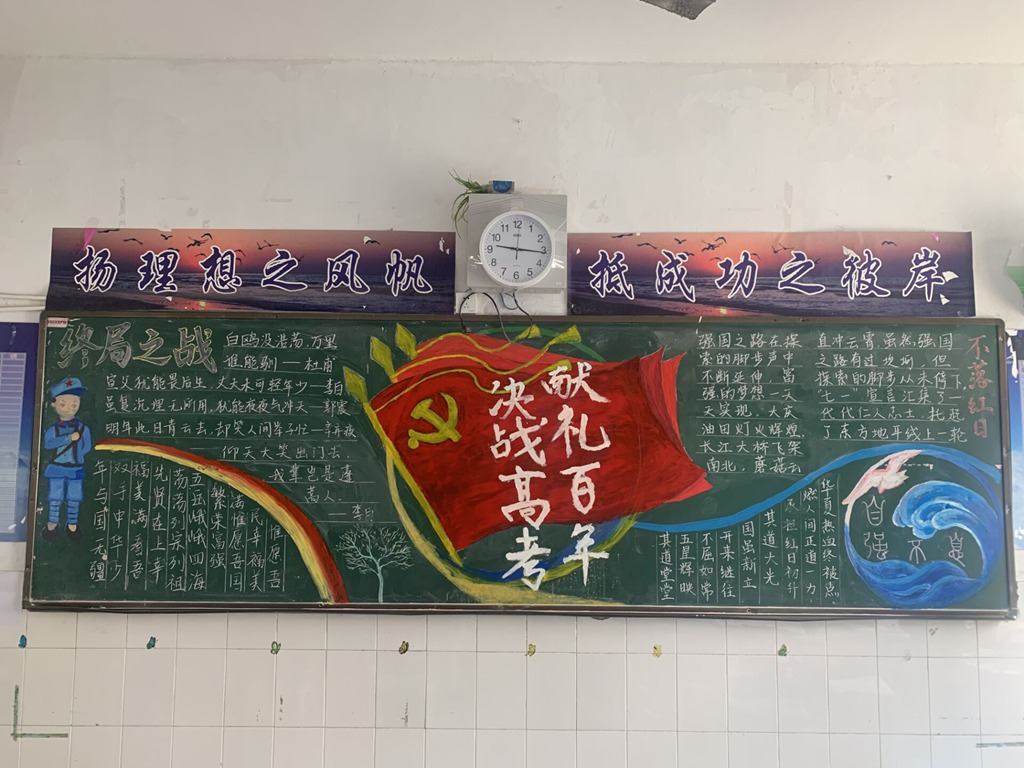 扬理想之风帆
抵成功之彼岸
终局之战
白鸥没浩荡，万里
谁能驯——杜甫
宣父犹能畏后生，丈夫未可轻年少——李白
虽复沉埋无所用，犹能夜夜气冲天——郭震
明年此日青云去，却笑人间举子忙——辛弃疾
仰天大笑出门去，
我辈岂是蓬
蒿人。
——李白
惟愿吾
民幸福美
满惟愿吾国
繁荣富强
五岳峨峨四海
荡荡列宗列祖
先贤在上辛
福美满看吾
双手中华少
年与国无疆
献礼百年
决战高考
强国之路在探
索的脚步声中
不断延伸，富
强的梦想一天
天实现，大庆
油田灯火辉煌，
长江大桥飞架
南北，摩擦云
直冲云霄虽然，强国
之路有过坎坷，但
探索的脚步从未停下
七一宣言汇集了一
代代仁人志士，托起
了东方地平线上一轮
不落红日
华夏热血终被点
燃人间正道一力
承担红日初升
其道大光
国虽新立
开来继往
不屈如常
五星辉映
其道堂堂
自强不息
12
1
2
3
4
5
6
7
8
9
10
11